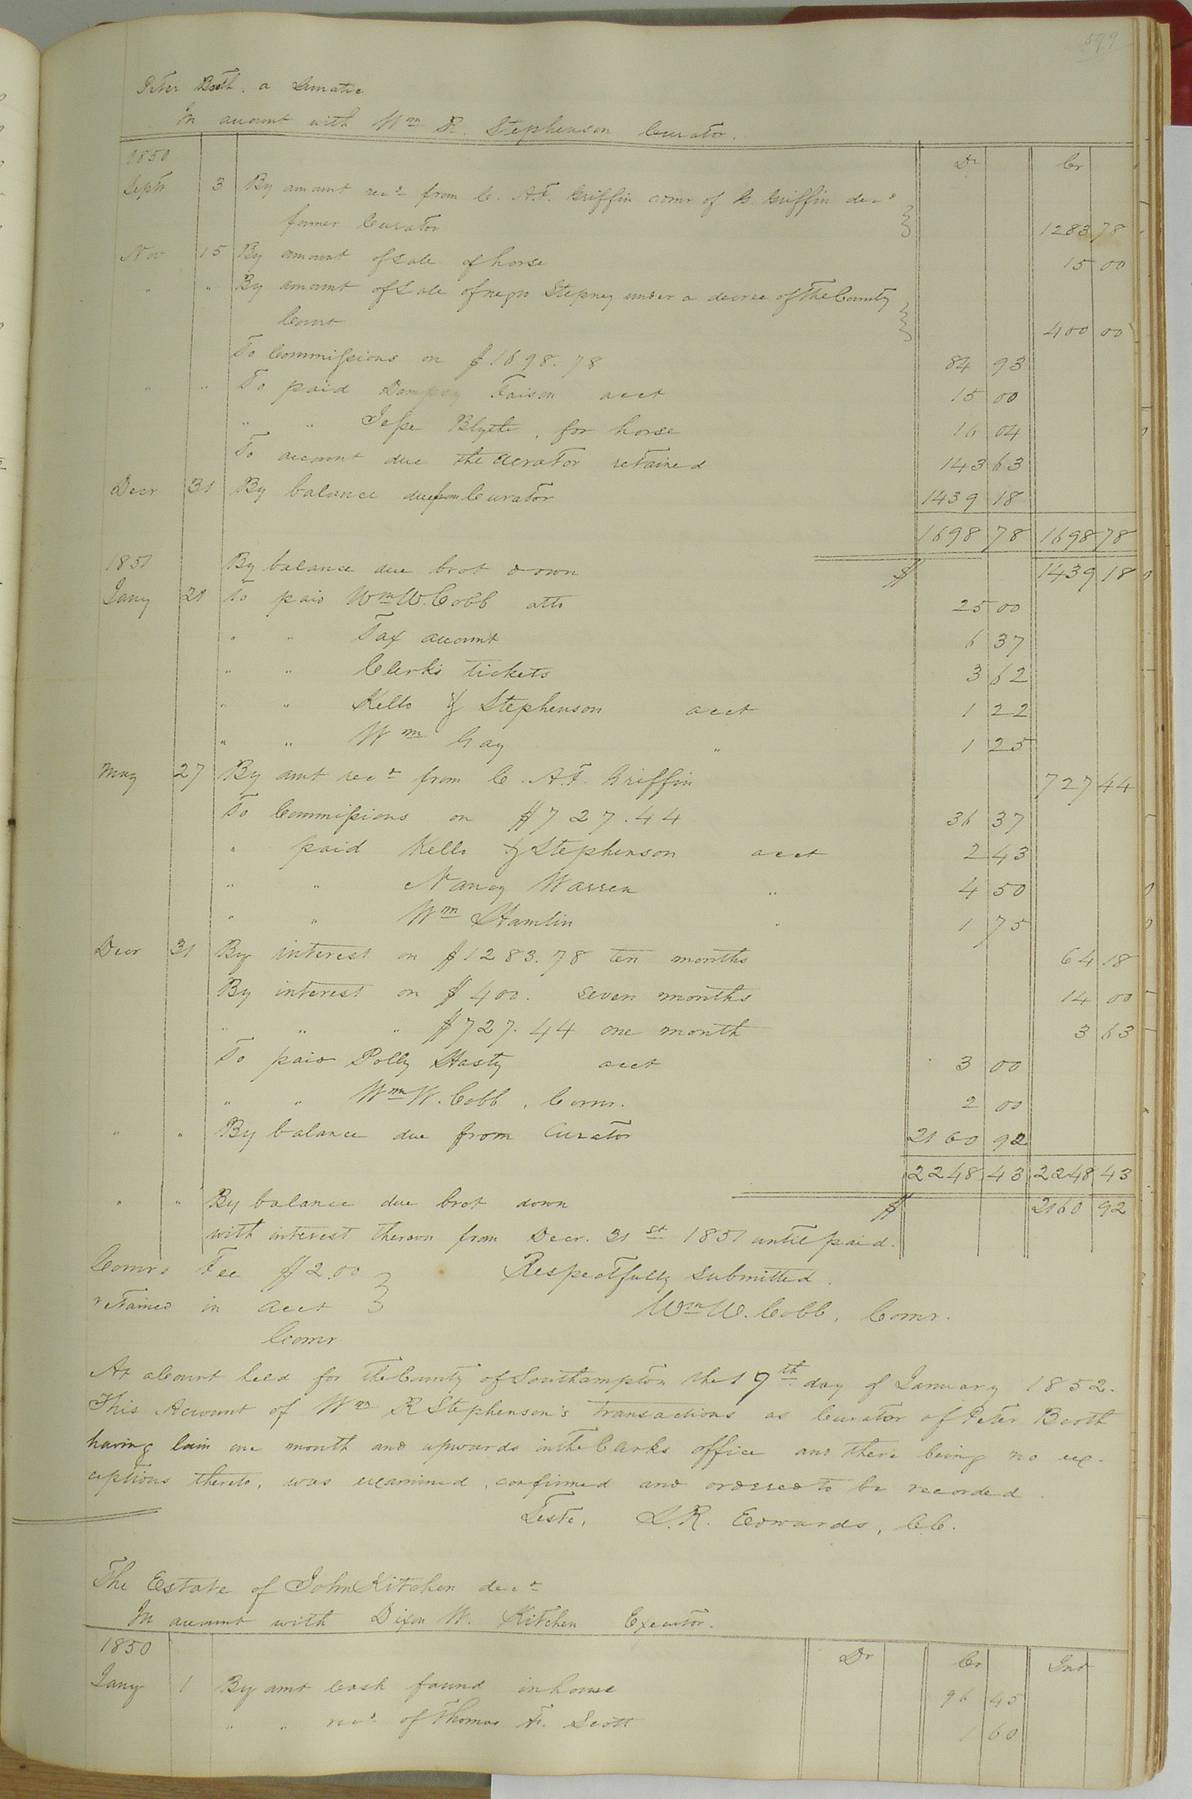 599
Peter Booth, a Lunatic
In account with Wm R. Stephenson Curator.
1850 Dr Cr
Septr 3 By amount recd from C. A.F. Griffin comr of B. Griffin decd
former Curator 1283 78
Nov 15 By amount of sale of horse 15 00
" " By amount of sale of negro Stepney under a decree of the County
Court 400 00
To Commissions on $1698.78 84 93
" " To paid Dempsey Faison acct 15 00
" " Jesse Blythe, for horse 16 04
To account due the curator retained 143 63
Decr 31 By balance due from Curator 1439 18
1698 78 1698 78
1851 By balance due brot down $ 1439 18
Jany 21 To paid Wm W. Cobb atto 25 00
" " Tax account 6 37
" " Clerks tickets 3 62
" " Kello & Stephenson acct 1 22
" " Wm Gay " 1 25
May 27 By amt recd from C. A.F. Griffin 727 44
To Commissions on $727.44 36 37
" paid Kello & Stephenson acct 2 43
" " Nancy Warren " 4 50
" " Wm Hamlin " 1 75
Decr 31 By interest on $1283.78 ten months 64 18
By interest on $400. seven months 14 00
" " " $727.44 one month 3 63
To paid Polly Hasty acct 3 00
" " Wm W. Cobb, Comr. 2 00
" " By balance due from Curator 2160 92
2248 43 2248 43
" " By balance due brot down $ 2160 92
with interest thereon from Decr. 31st 1851 until paid.
Comrs Fee $2.00 Respectfully submitted.
retained in acct Wm W. Cobb, Comr.
Comr
At a Court held for the County of Southampton the 19th day of January 1852.
This Account of Wm R Stephenson's transactions as Curator of Peter Booth
having lain one month and upwards in the Clerks office and there being no ex-
ceptions thereto, was examined, confirmed and ordered to be recorded.
Teste, L.R. Edwards, C.C.
The Estate of John Kitchen decd
In account with Dixon W. Kitchen Executor.
1850 Dr Cr Int
Jany 1 By amt Cash found in house 96 45
" " recd of Thomas F. Scott 1 60